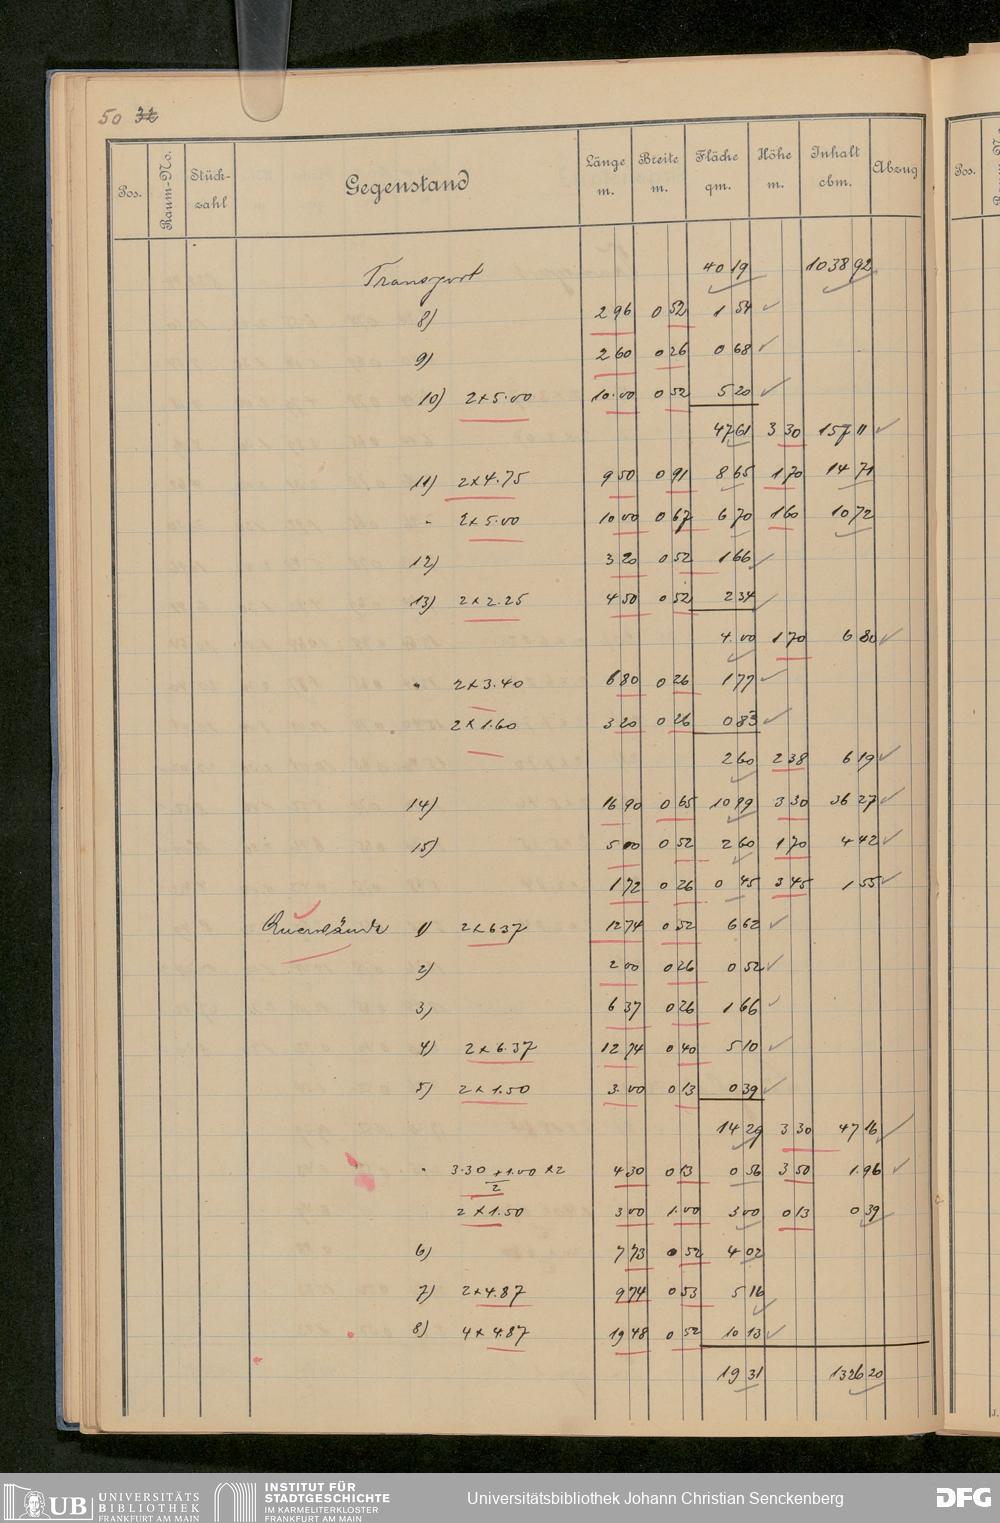 50 32
Pos. Raum-No. Stück-zahl Gegenstand Länge m. Breite m. Fläche qm. Höhe m. Inhalt cbm. Abzug Pos.
Transport 40 19 1038 92
8) 2 96 0 52 1 54
9) 2 60 0 26 0 68
10) 2 x 5.00 10.00 0 52 5 20
47 61 3 30 157 11
11) 2 x 4.75 9 50 0 91 8 65 1 70 14 71
" 2 x 5.00 10 00 0 67 6 70 1 60 10 72
12) 3 20 0 52 1 66
13) 2 x 2.25 4 50 0 52 2 34
4.00 1 70 6 80
" 2 x 3.40 6 80 0 26 1 77
2 x 1.60 3 20 0 26 0 83
2 60 2 38 6 19
14) 16 90 0 65 10 99 3 30 36 27
15) 5 00 0 52 2 60 1 70 4 42
1 72 0 26 0 45 3 45 1 55
Querwände 1) 2 x 6 37 12 74 0 52 6 62
2) 2 00 0 26 0 52
3) 6 37 0 26 1 66
4) 2 x 6.37 12 74 0 40 5 10
5) 2 x 1.50 3.00 0 13 0 39
14 29 3 30 47 16
" 3.30 + 1.00 x 2 4 30 0 13 0 56 3 50 1.96
2
2 x 1.50 3 00 1.00 3 00 0 13 0 39
6) 7 73 0 52 4 02
7) 2 x 4.87 9 74 0 53 5 16
8) 4 x 4.87 19 48 0 52 10 13
19 31 1326 20
UB UNIVERSITÄTS BIBLIOTHEK FRANKFURT AM MAIN
INSTITUT FÜR STADTGESCHICHTE IM KARMELITERKLOSTER FRANKFURT AM MAIN
Universitätsbibliothek Johann Christian Senckenberg
DFG